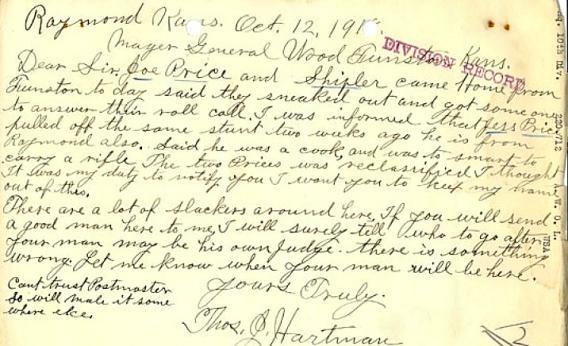 Raymond Kans. Oct. 12, 191
Mager General Wood Funston Kans.
DIVISION RECORD
Dear Sir, Joe Price and Shipler came home from
Funston to day said they sneaked out and got someone
to answer their roll call. I was informed that Jess Price
pulled off the same stunt two weeks ago he is from
Raymond also. Said he was a cook, and was to smart to
carry a rifle. The two Prices was reclassified I thought
It was my duty to notify you I want you to keep my name
out of this.
There are a lot of slackers around here, If you will send
a good man here to me, I will surely tell who to go after
your man may be his own judge. there is something
wrong. Let me know when your man will be here.
Cant trust Postmaster
so will mail it some
where else.
Yours Truly.
Thos. J. Hartman